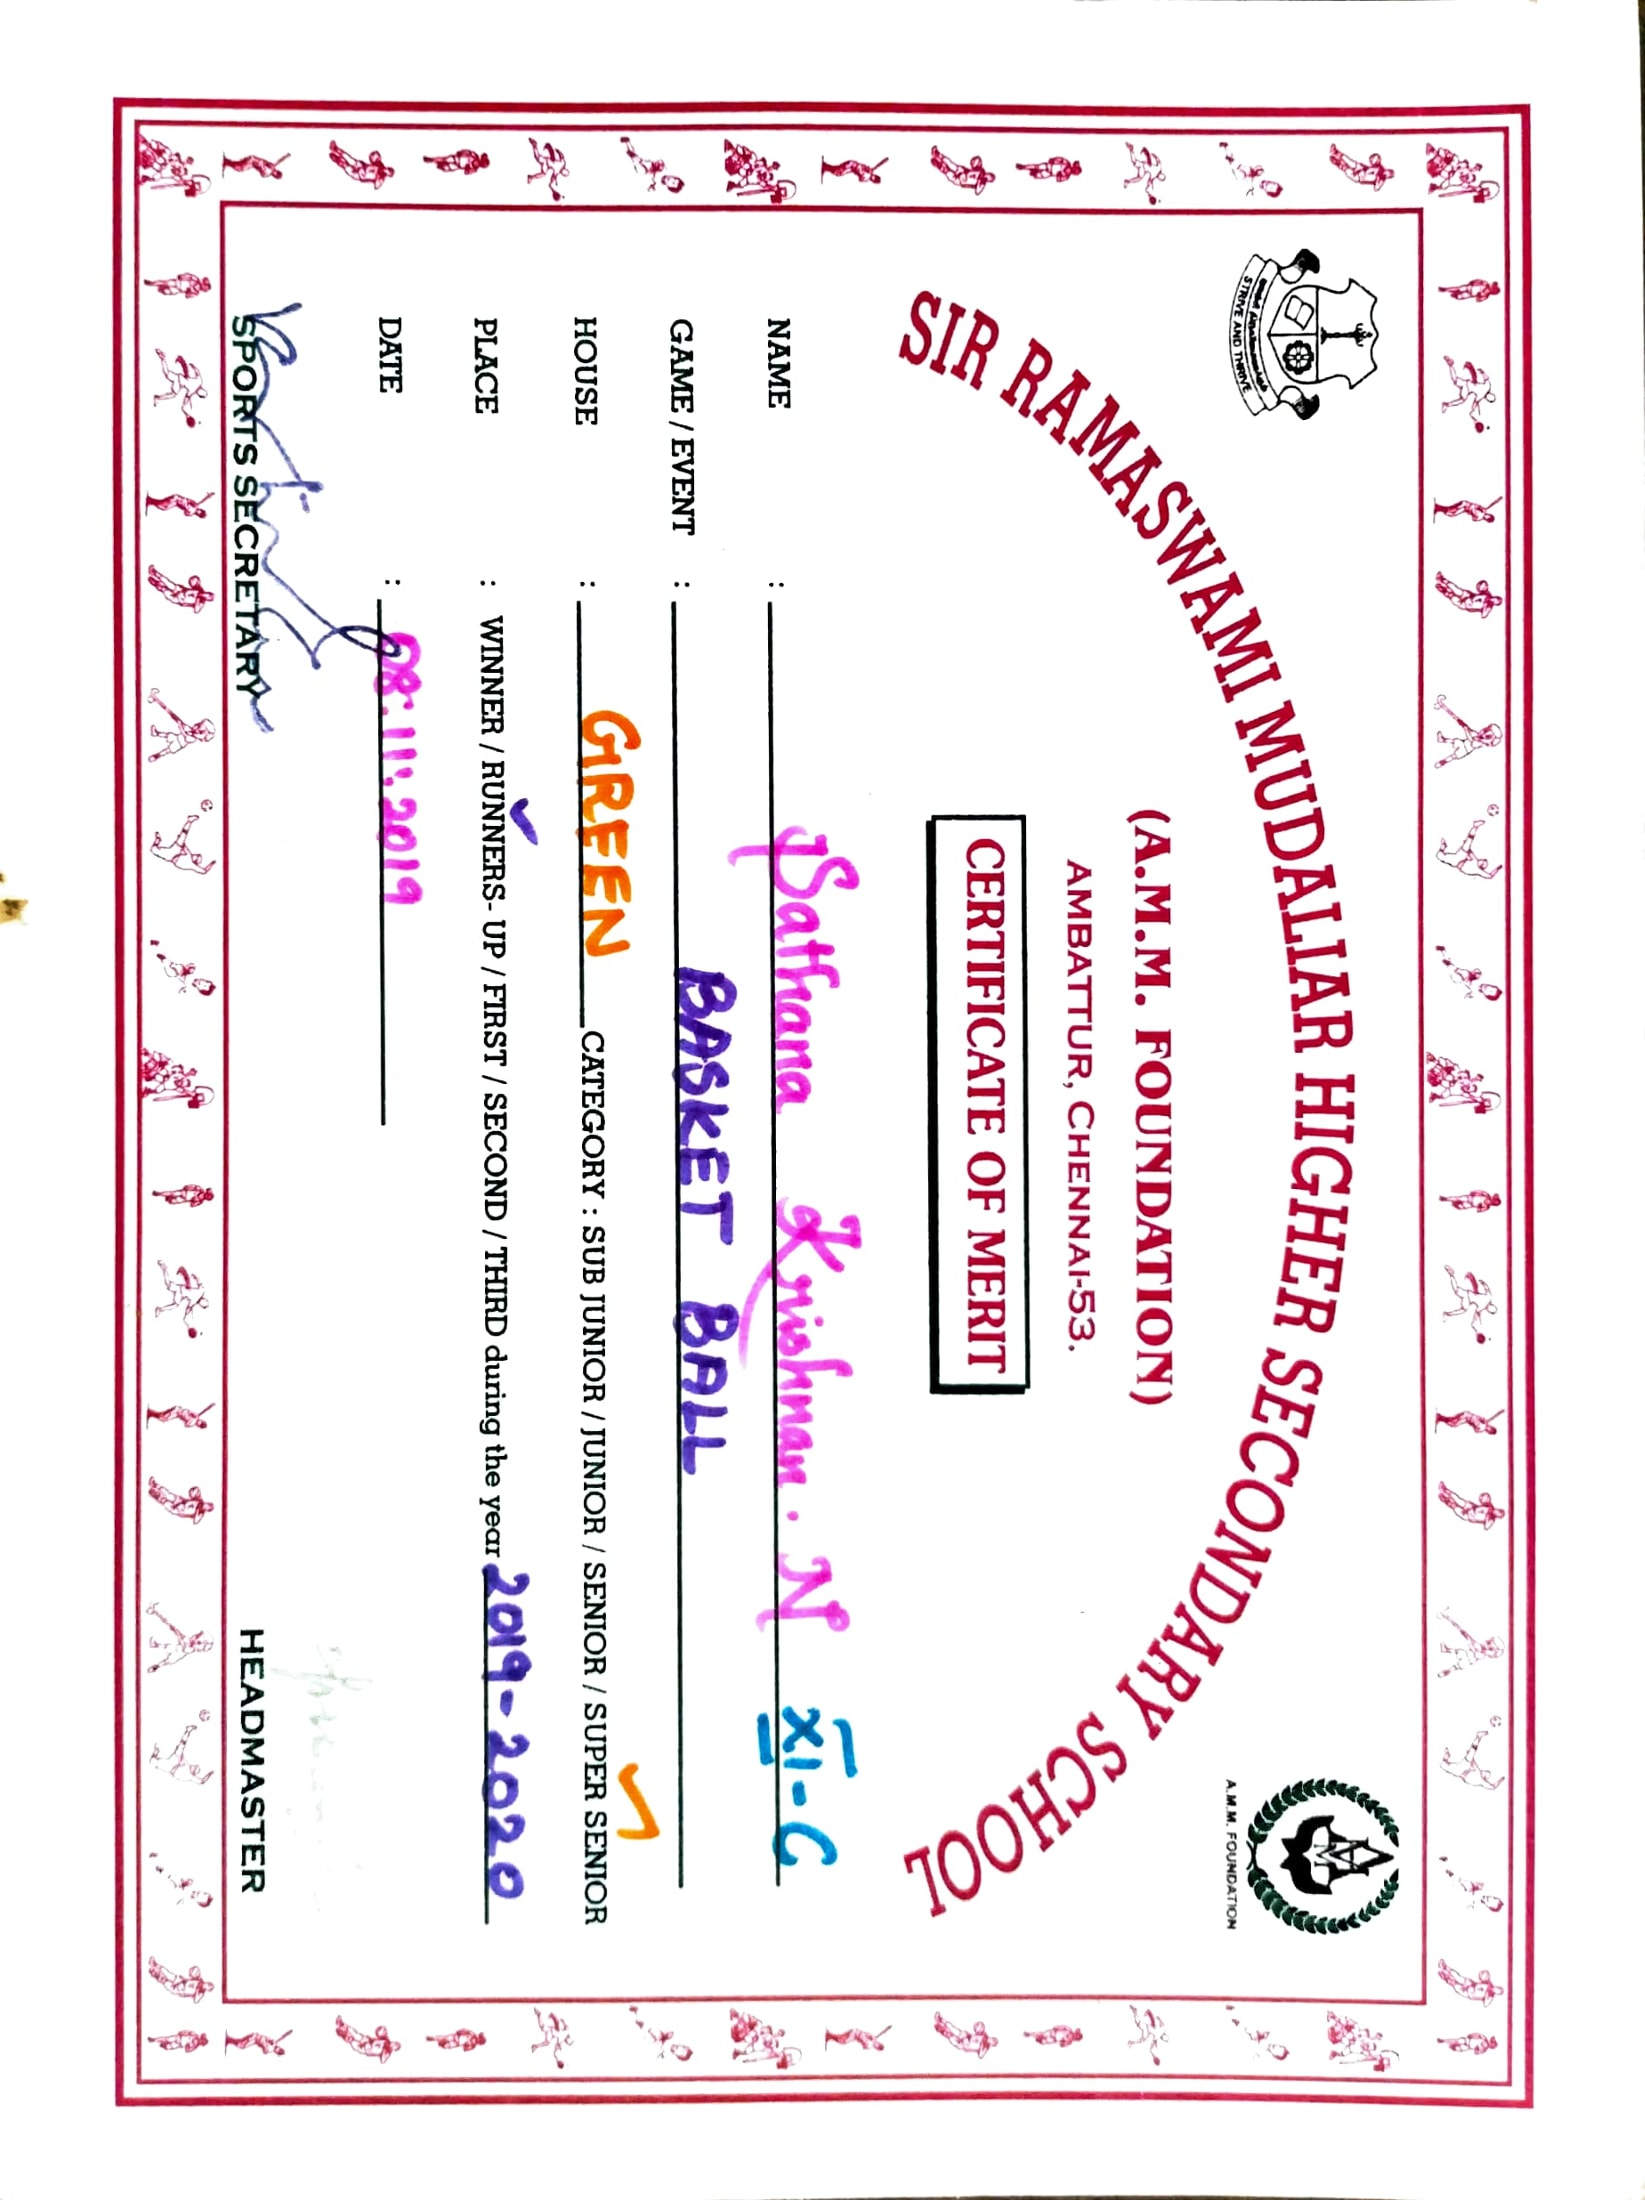 STRIVE AND THRIVE
A.M.M. FOUNDATION
SIR RAMASWAMI MUDALIAR HIGHER SECONDARY SCHOOL
(A.M.M. FOUNDATION)
AMBATTUR, CHENNAI-53.
CERTIFICATE OF MERIT
NAME : Sathana Krishnan. N XI-C
GAME / EVENT : BASKET BALL
HOUSE : GREEN CATEGORY : SUB JUNIOR / JUNIOR / SENIOR / SUPER SENIOR
PLACE : WINNER / RUNNERS- UP / FIRST / SECOND / THIRD during the year 2019-2020
DATE : 08:11:2019
SPORTS SECRETARY HEADMASTER